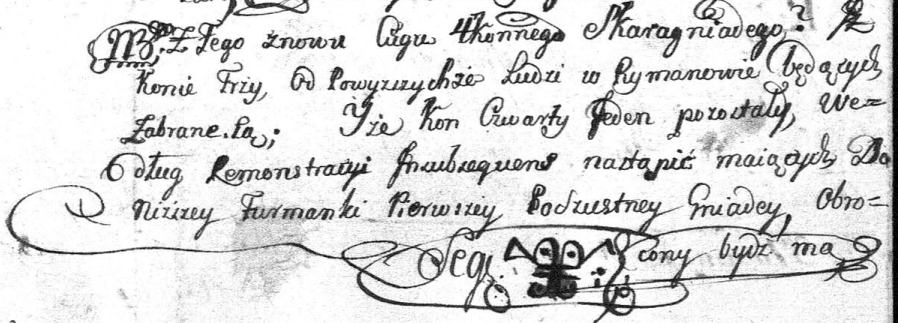 NB. Z Tego znowu Cugu 4konnego Skarogniadego, iż
Konie Trzy, Od Powyzszychże Ludzi w Rymanowie będących
Zabrane. są; Y że Kon Czwarty Jeden pozostały, We=
dług Remonstratyi Insubsequens nastąpić maiących Do
Niższey Furmanki Pierwszey Podzustney Gniadey, Obro=
cony bydz ma
Seq: